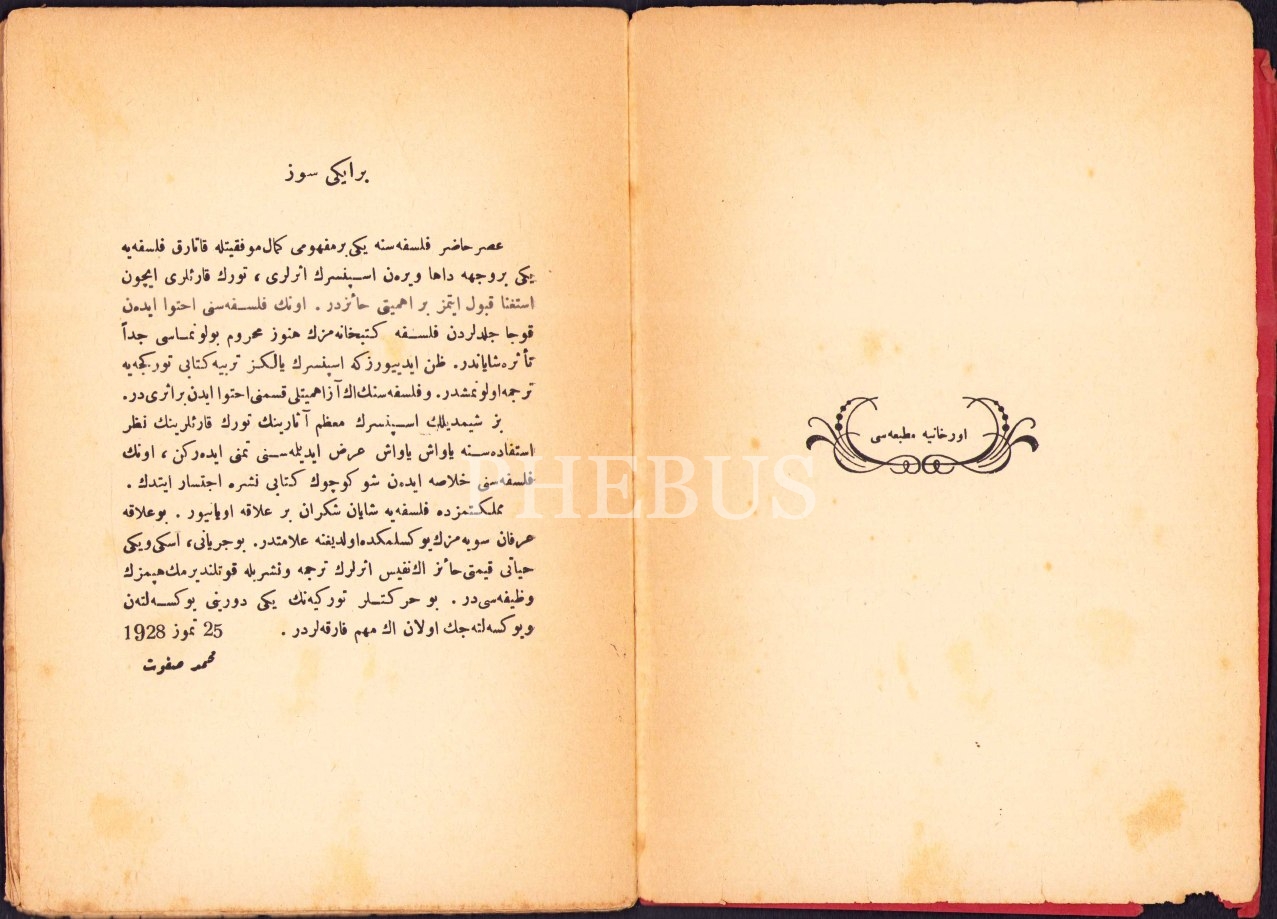 اورخانیه مطبعه‌سی
بر ایکی سوز
عصر حاضر فلسفه‌سنه یکی بر مفهومی کمال موفقیتله قاتارق فلسفه‌یه
یکی بر وجهه داها ویره‌ن اسپنسرك اثرلری ، تورك قارئلری ایچون
استغنا قبول ایتمز بر اهمیتی حائزدر . اونك فلسفه‌سنی احتوا ایده‌ن
قوجا جلدلردن فلسفه کتبخانه‌مزك هنوز محروم بولونماسی جداً
تأثره شایاندر. ظن ایدییورزکه اسپنسرك یالکز تربیه کتابی تورکجه‌یه
ترجمه اولونمشدر. و فلسفه‌سنك اك آز اهمیتلی قسمنی احتوا ایدن بر اثری در.
بز شیمدیلك اسپنسرك معظم آثارینك تورك قارئلرینك نظر
استفاده‌سنه یاواش یاواش عرض ایدیلمه‌سنی تمنی ایده‌رکن ، اونك
فلسفه‌سنی خلاصه ایده‌ن شو کوچوك کتابی نشره اجتسار ایتدك .
مملکتمزده فلسفه‌یه شایان شکران بر علاقه اویانیور . بو علاقه
عرفان سویه‌مزك یوکسلمکده اولدیغنه علامتدر. بو جریانی، اسکی و یکی
حیاتی قیمتی حائز اك نفیس اثرلرك ترجمه و نشریله قوتلندیرمك هپمزك
وظیفه‌سی در . بو حرکتلر تورکیه‌نك یکی دورینی یوکسه‌لته‌ن
و یوکسه‌لته‌جك اولان اك مهم فارقه‌لردر . 25 تموز 1928
محمد صفوت
PHEBUS